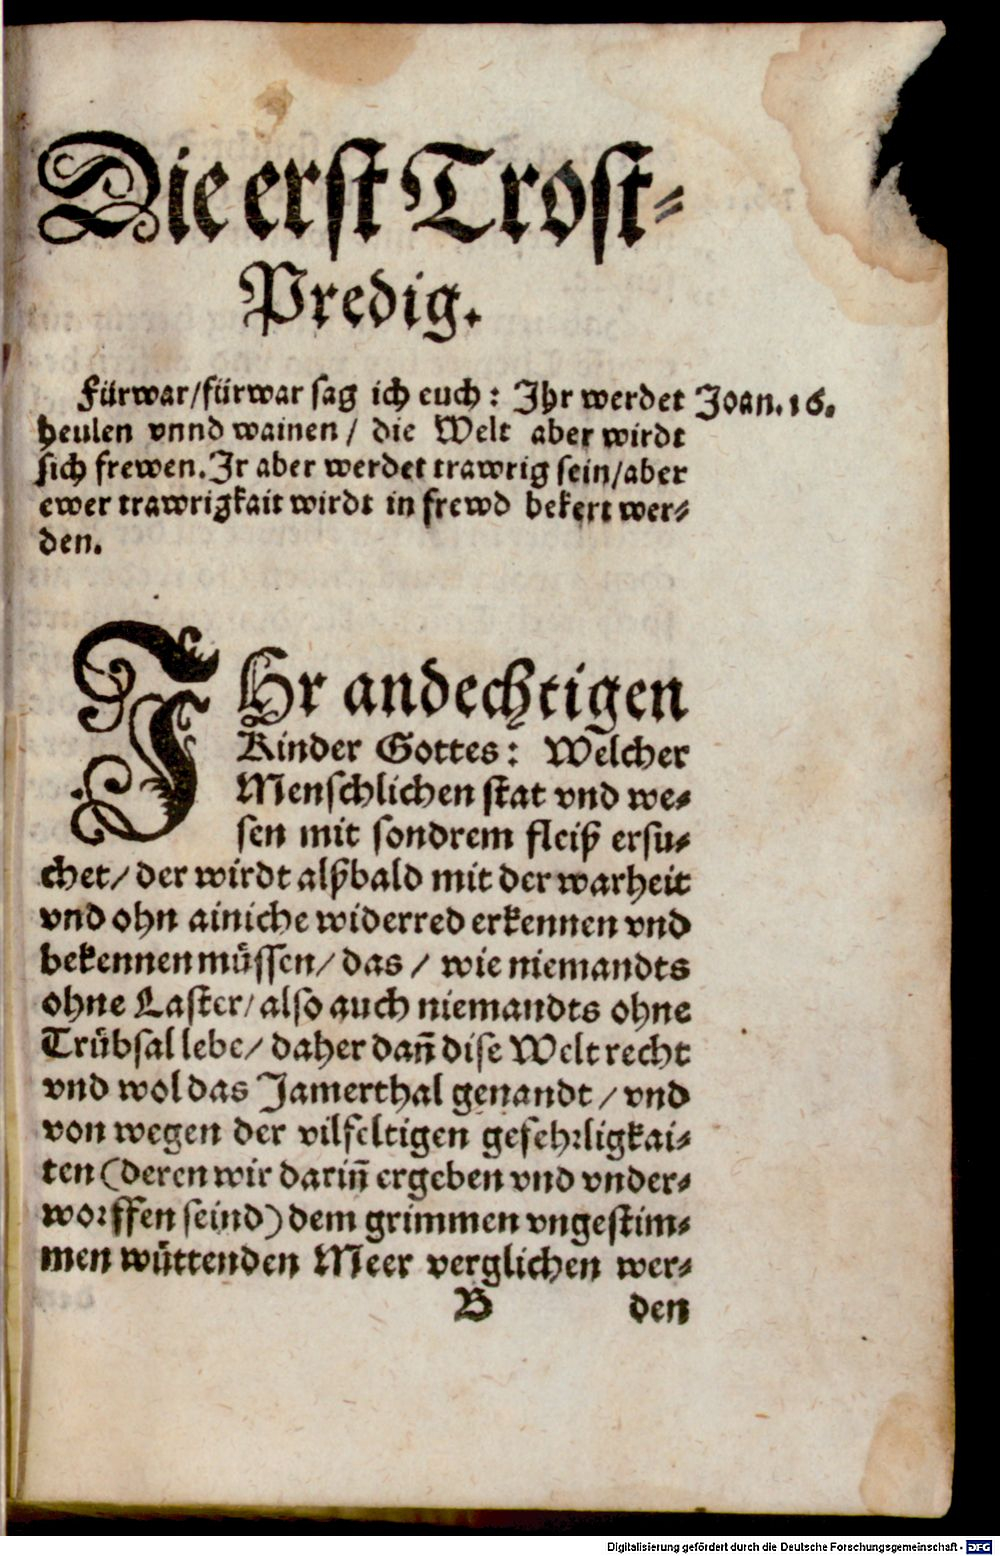 Die erst Trost-
Predig.
Fürwar/fürwar sag ich euch: Ihr werdet
Joan. 16.
heulen vnnd wainen/ die Welt aber wirdt
sich frewen. Ir aber werdet trawrig sein/aber
ewer trawrigkait wirdt in frewd bekert wer-
den.
IHr andechtigen
Kinder Gottes: Welcher
Menschlichen stat vnd we-
sen mit sondrem fleiß ersu-
chet/ der wirdt alßbald mit der warheit
vnd ohn ainiche widerred erkennen vnd
bekennen müssen/ das/ wie niemandts
ohne Laster/ also auch niemandts ohne
Trübsal lebe/ daher dañ dise Welt recht
vnd wol das Jamerthal genandt/ vnd
von wegen der vilfeltigen gefehrligkai-
ten (deren wir dariñ ergeben vnd vnder-
worffen seind) dem grimmen vngestim-
men wüttenden Meer verglichen wer-
B den
Digitalisierung gefördert durch die Deutsche Forschungsgemeinschaft - DFG